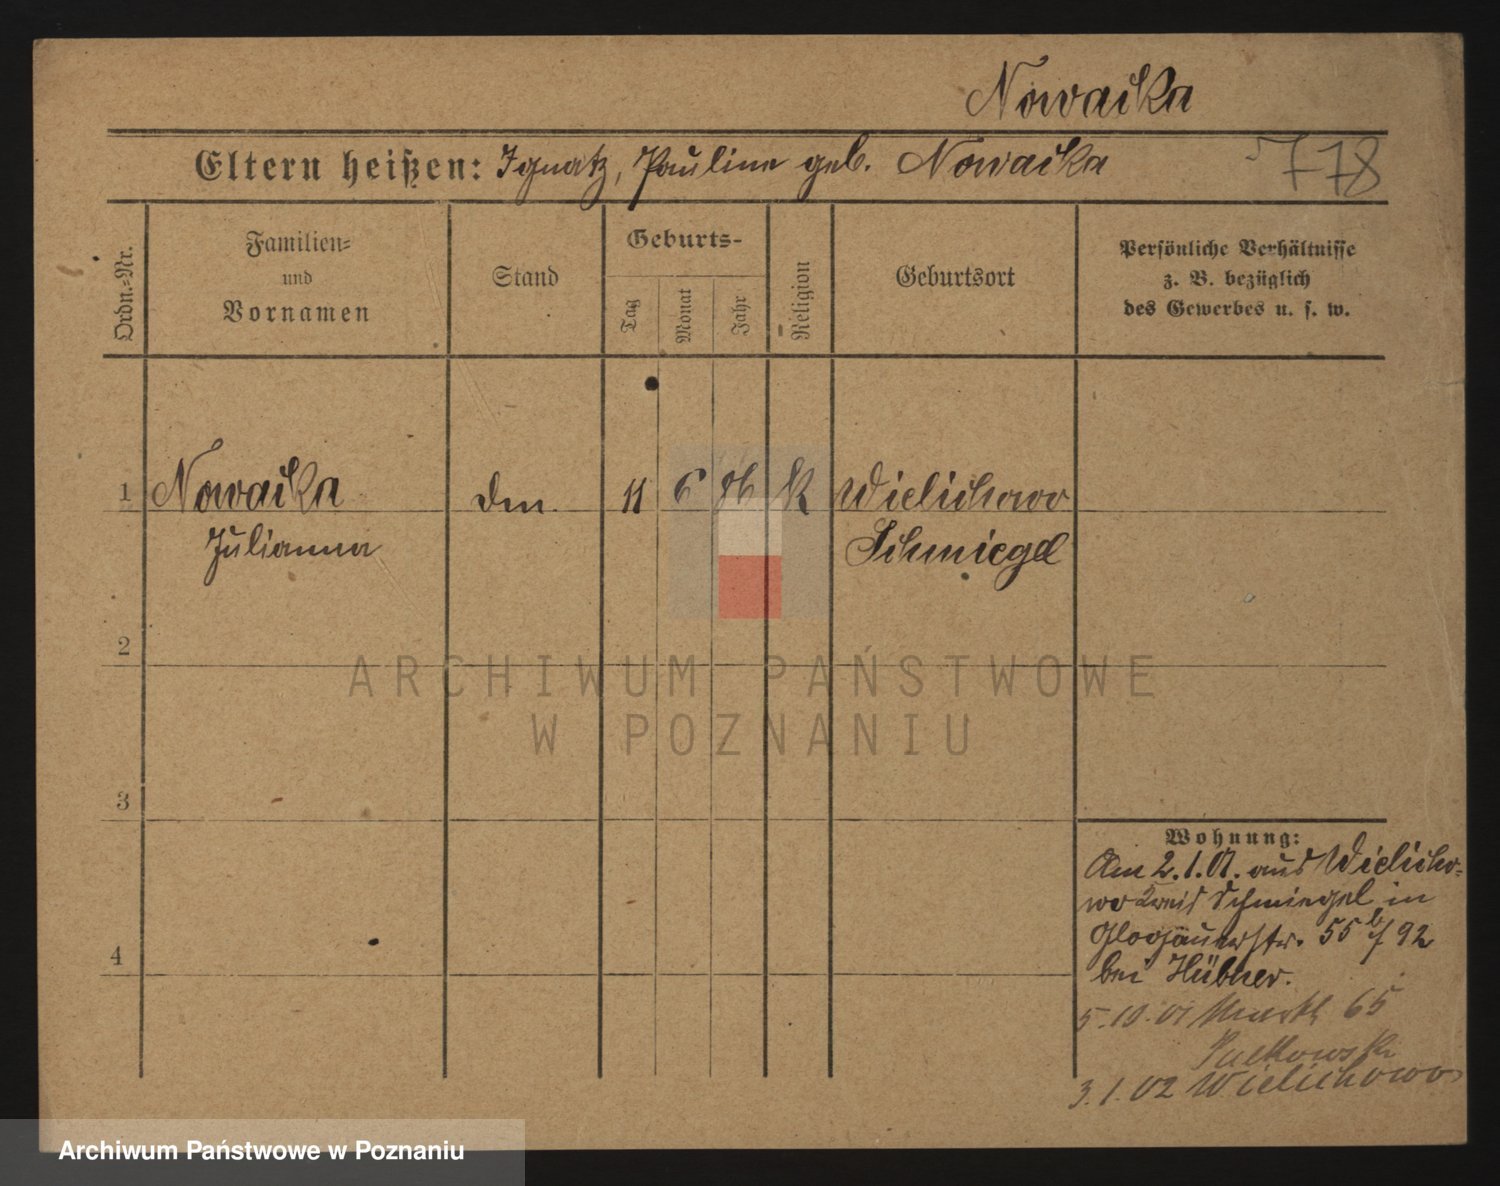 Nowacka
Eltern heißen: Ignatz, Pauline geb. Nowacka
778
Ordn.-Nr.
Familien-
und
Vornamen
Stand
Geburts-
Tag
Monat
Jahr
Religion
Geburtsort
Persönliche Verhältnisse
z. B. bezüglich
des Gewerbes u. s. w.
1 Nowacka 11 6 86 k Wielichowo
Julianna Schmiegel
2
3
4
Wohnung:
Am 2.1.01. aus Wielicho-
wo Kreis Schmiegel in
Glogauerstr. 55 92
bei Hübner.
5.10.01 Markt 65
3.1.02 Wielichowo
ARCHIWUM PAŃSTWOWE
W POZNANIU
Archiwum Państwowe w Poznaniu